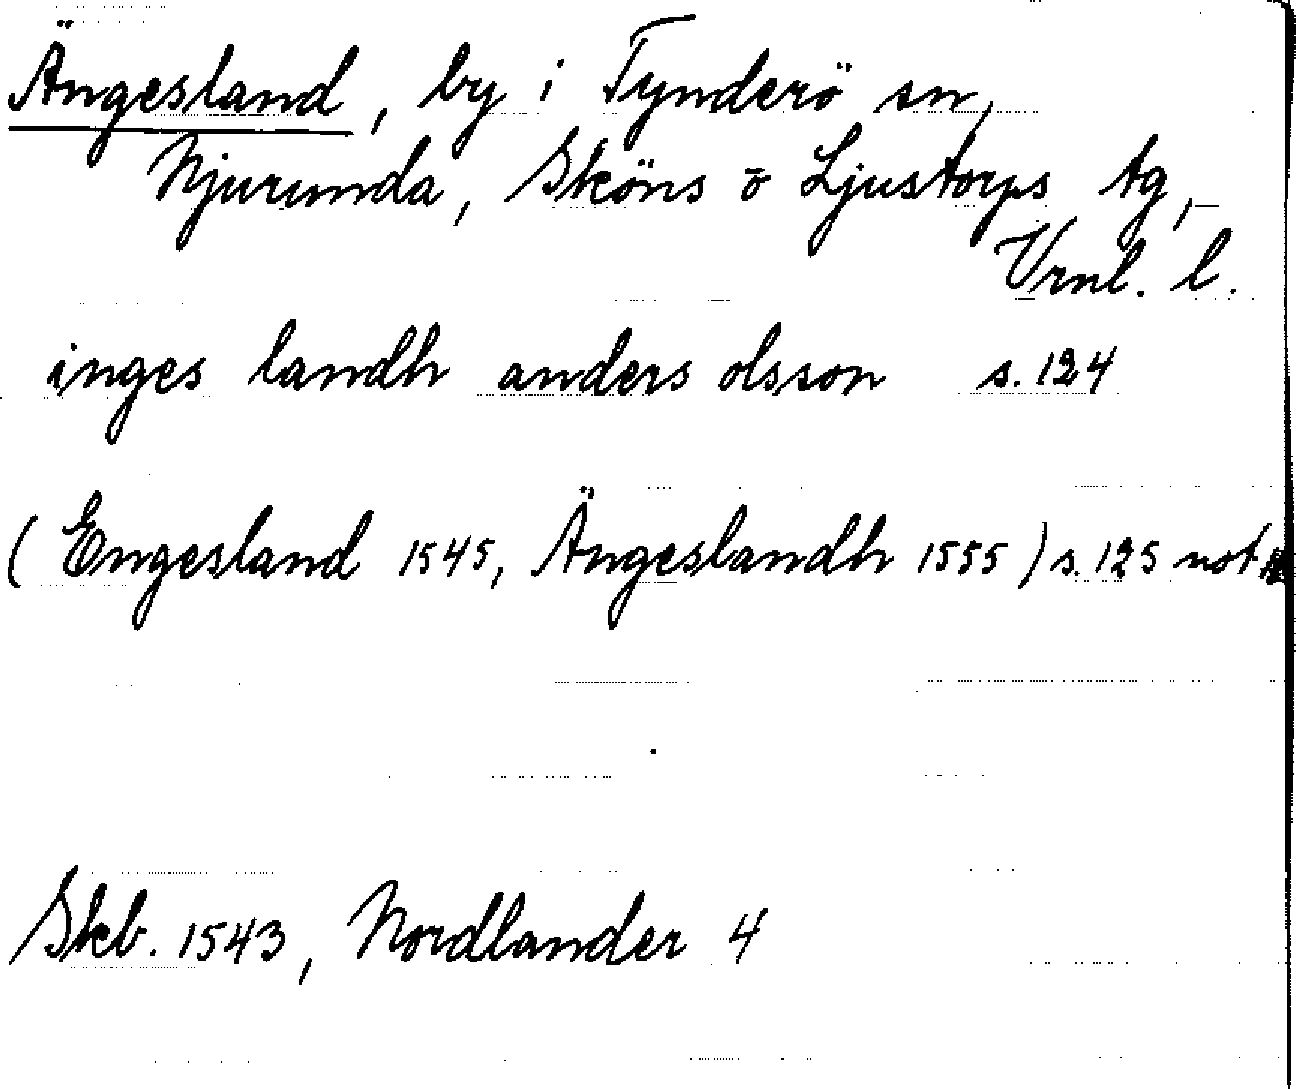 Ängesland, by i Tynderö sn,
Njurunda, Sköns o Ljustorps tg,
Vrnl. l.
inges landh anders olsson s. 124
(Engesland 1545, Ängeslandh 1555) s. 125 not
Skb. 1543, Nordlander 4